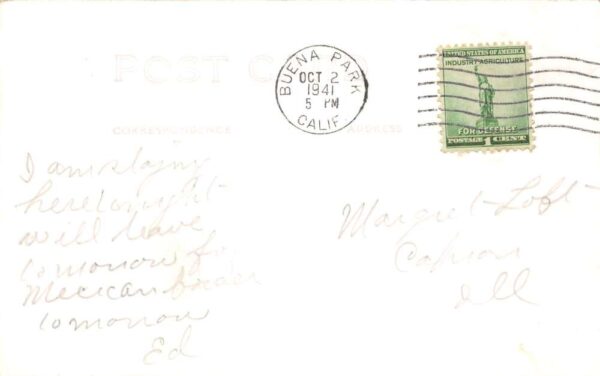 POST CARD
BUENA PARK
OCT 2
1941
5 PM
CALIF.
UNITED STATES OF AMERICA
INDUSTRY AGRICULTURE
FOR DEFENSE
POSTAGE 1 CENT
CORRESPONDENCE
ADDRESS
I am staying
here tonight
will leave
tomorrow for
Mexican border
tomorrow
Ed
Margret Loft
Capron
Ill